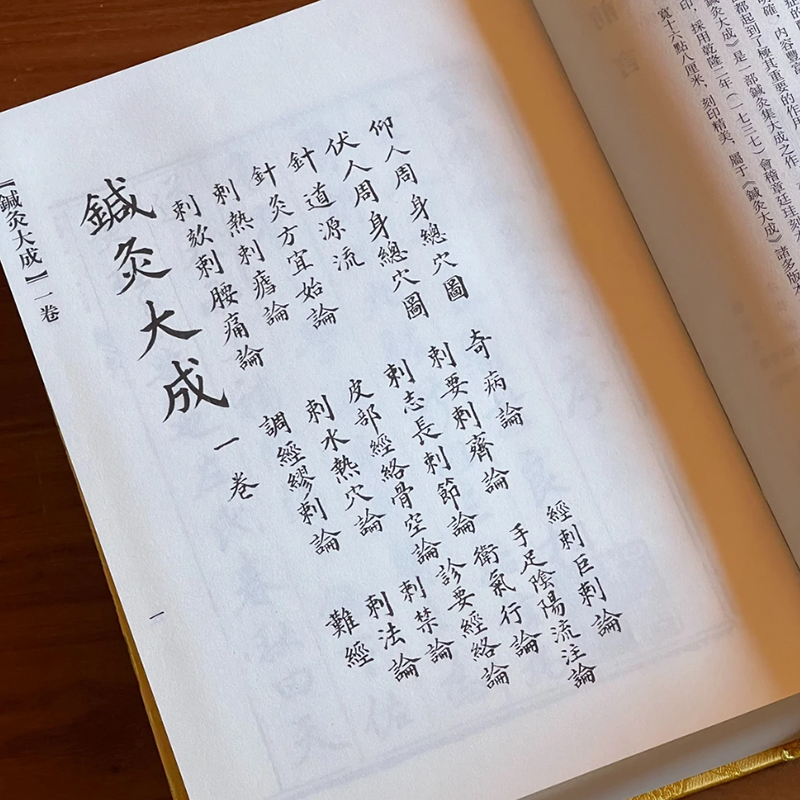 都起到了極其重要的作用
鍼灸大成》是一部鍼灸集大成之作
印，採用乾隆二年（一七三七）會稽章廷珪刻
寬十六點八厘米，刻印精美，屬于《鍼灸大成》諸多版本
鍼灸大成 一卷
仰人周身總穴圖
伏人周身總穴圖
針道源流
針灸方宜始論
刺熱刺瘧論
刺欬刺腰痛論
奇病論
刺要刺齊論
刺志長刺節論
皮部經絡骨空論
刺水熱穴論
調經繆刺論
經刺巨刺論
手足陰陽流注論
衛氣行論
診要經絡論
刺禁論
刺法論
難經
『鍼灸大成』一卷
一